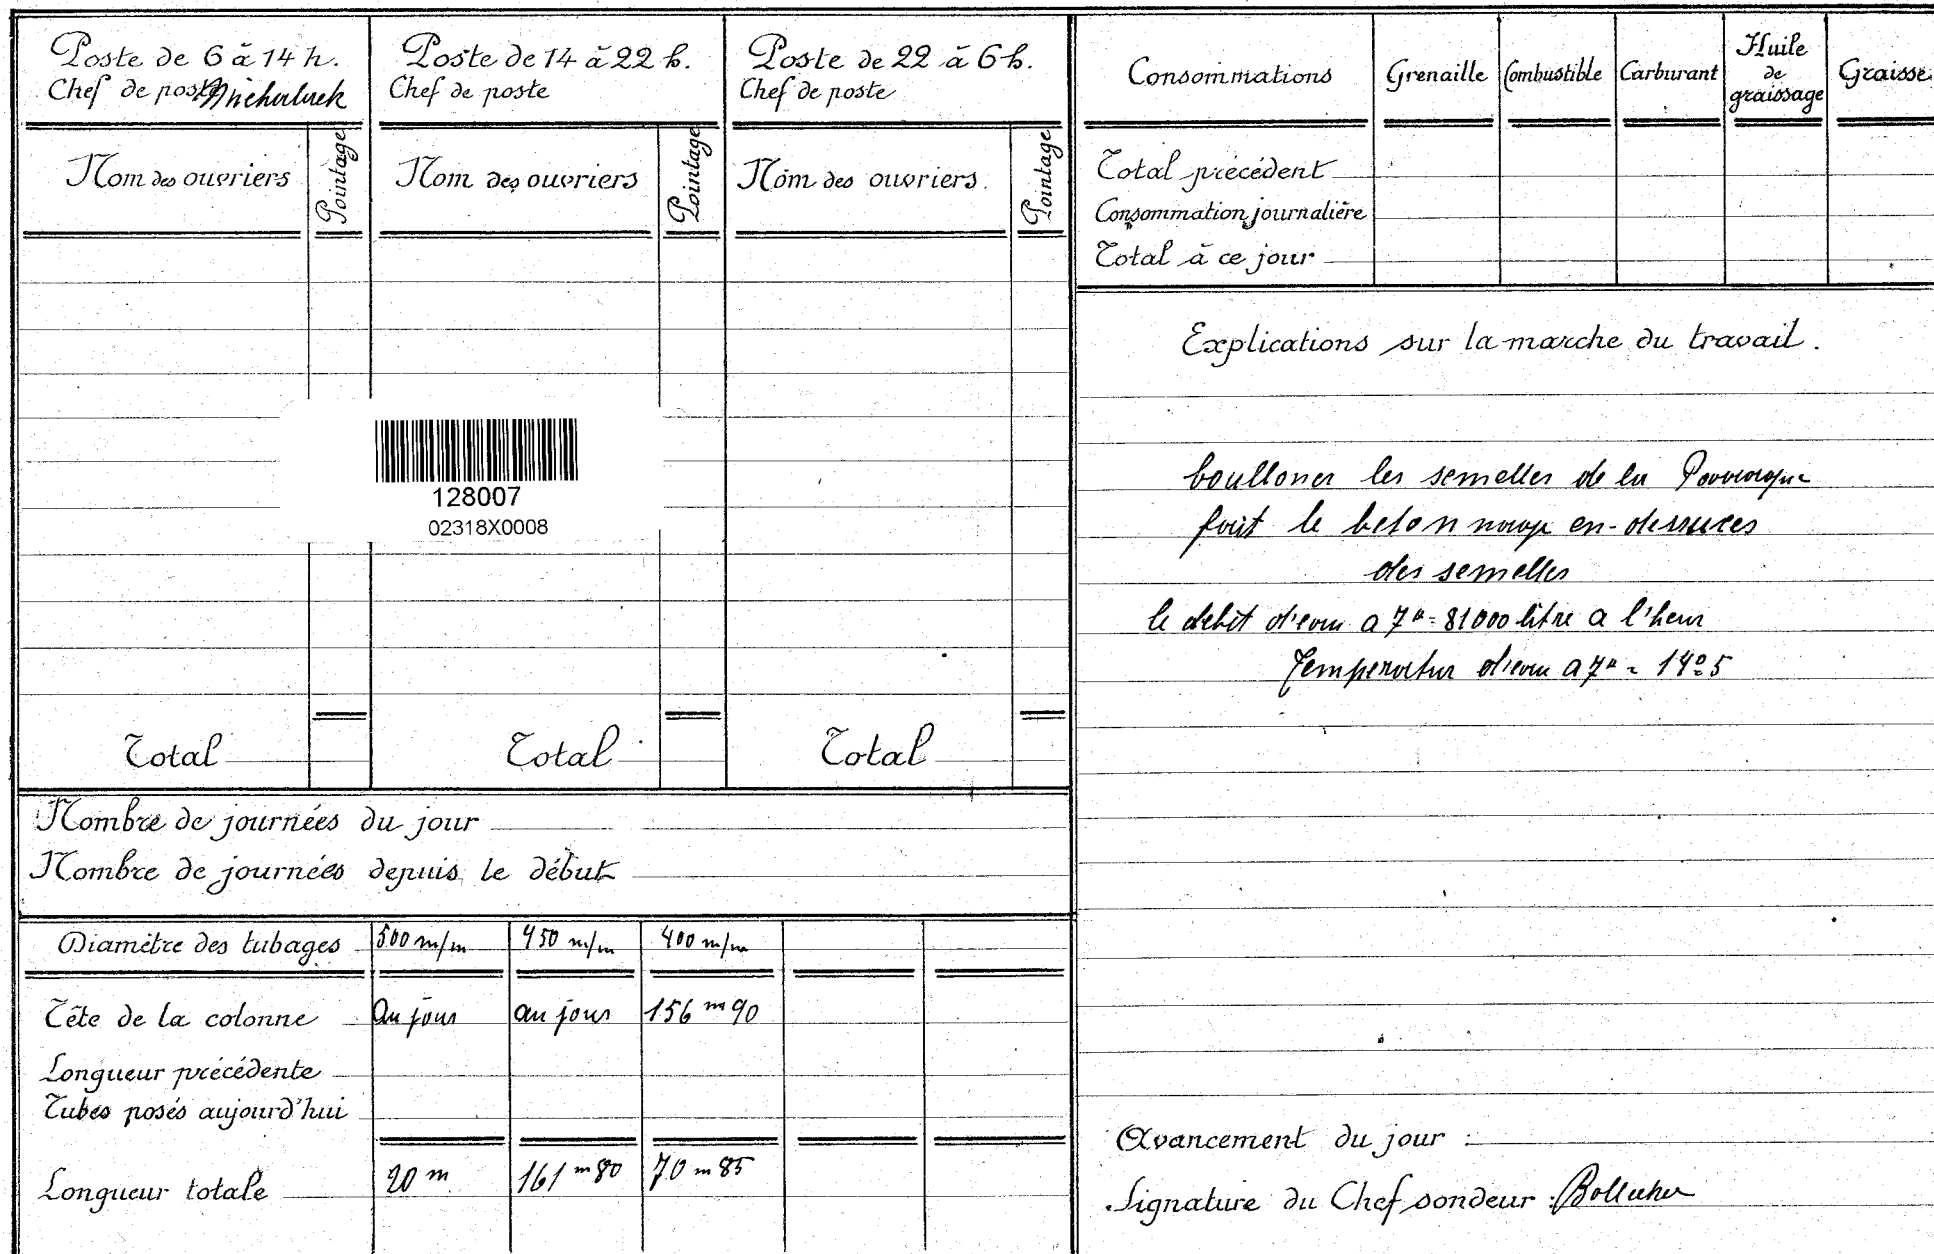 Poste de 6 à 14 h.
Chef de poste
Nom des ouvriers
Pointage
Total
Poste de 14 à 22 h.
Chef de poste
Nom des ouvriers
Pointage
Total
Poste de 22 à 6 h.
Chef de poste
Nom des ouvriers
Pointage
Total
128007
02318X0008
Nombre de journées du jour
Nombre de journées depuis le début
Diamètre des tubages 500 m/m 450 m/m 400 m/m
Tête de la colonne au jour au jour 156 m 90
Longueur précédente
Tubes posés aujourd'hui
Longueur totale 20 m 161 m 80 70 m 85
Consommations Grenaille Combustible Carburant Huile de graissage Graisse
Total précédent
Consommation journalière
Total à ce jour
Explications sur la marche du travail.
boulloner les semelles de la
fait le beton en-dessuces
des semelles
le debit d'eau a 7h = 81000 litre a l'heur
Temperatur d'eau a 7h = 14°5
Avancement du jour :
Signature du Chef sondeur :